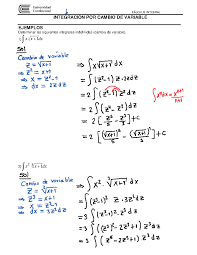 Universidad Continental
INTEGRACIÓN POR CAMBIO DE VARIABLE
EJEMPLOS
Determinar las siguientes integrales indefinidas (cambio de variable)
1) ∫x√x+1dx
Sol
Cambio de variable
z = √x+1
⇒ z² = x+1
⇒ x = z²-1
⇒ dx = 2zdz
⇒ ∫x√x+1 dx
= ∫(z²-1) z·2zdz
= 2∫(z²-1) z² dz
= 2∫(z⁴-z²) dz
= 2[z⁵/5 - z³/3] + C
= 2[(√x+1)⁵/5 - (√x+1)³/3] + C
∫xⁿdx = xⁿ⁺¹/n+1
Sol
Cambio de variable
⇒ z³ = x+1
⇒ x = z³-1
⇒ dx = 3z²dz
⇒ ∫x²·∛x+1 dx
= ∫(z³-1)² z·3z²dz
= 3∫(z³-1)²·z³dz
= 3∫(z⁶-2z³+1) z³dz